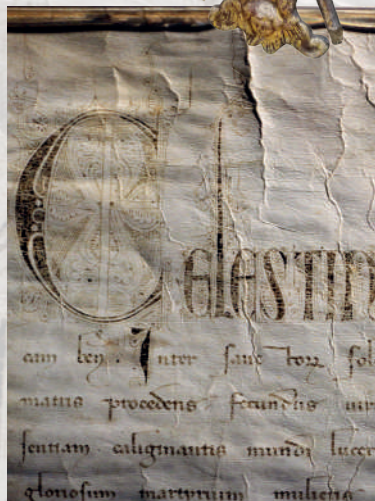 Celestin
eam ben Inter sanctorz sol
matus procedens fecundus vir
sentiam caliginantis mundi lucer
gloriosum martyrium mulieris